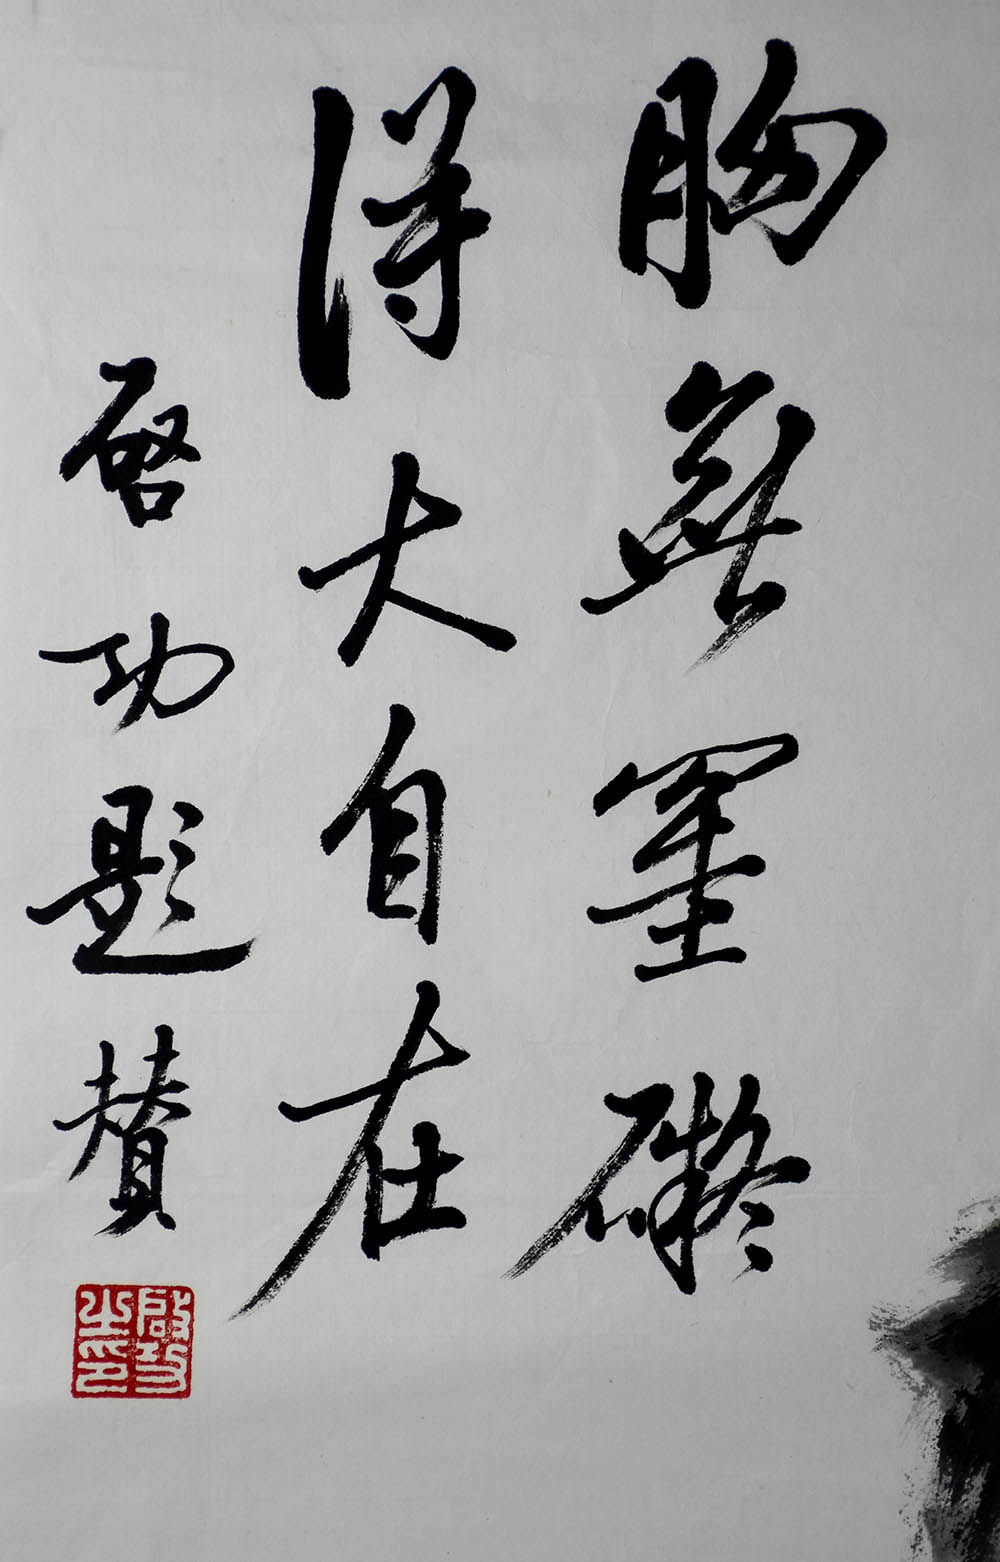 胸無罣礙
得大自在
啓功題贊
啓功之印